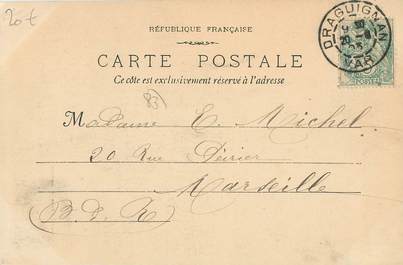 20 €
RÉPUBLIQUE FRANÇAISE
CARTE POSTALE
Ce côté est exclusivement réservé à l'adresse
DRAGUIGNAN
VAR
83
Madame E. Michel
20 Rue Périer
Marseille
(B. D. R)